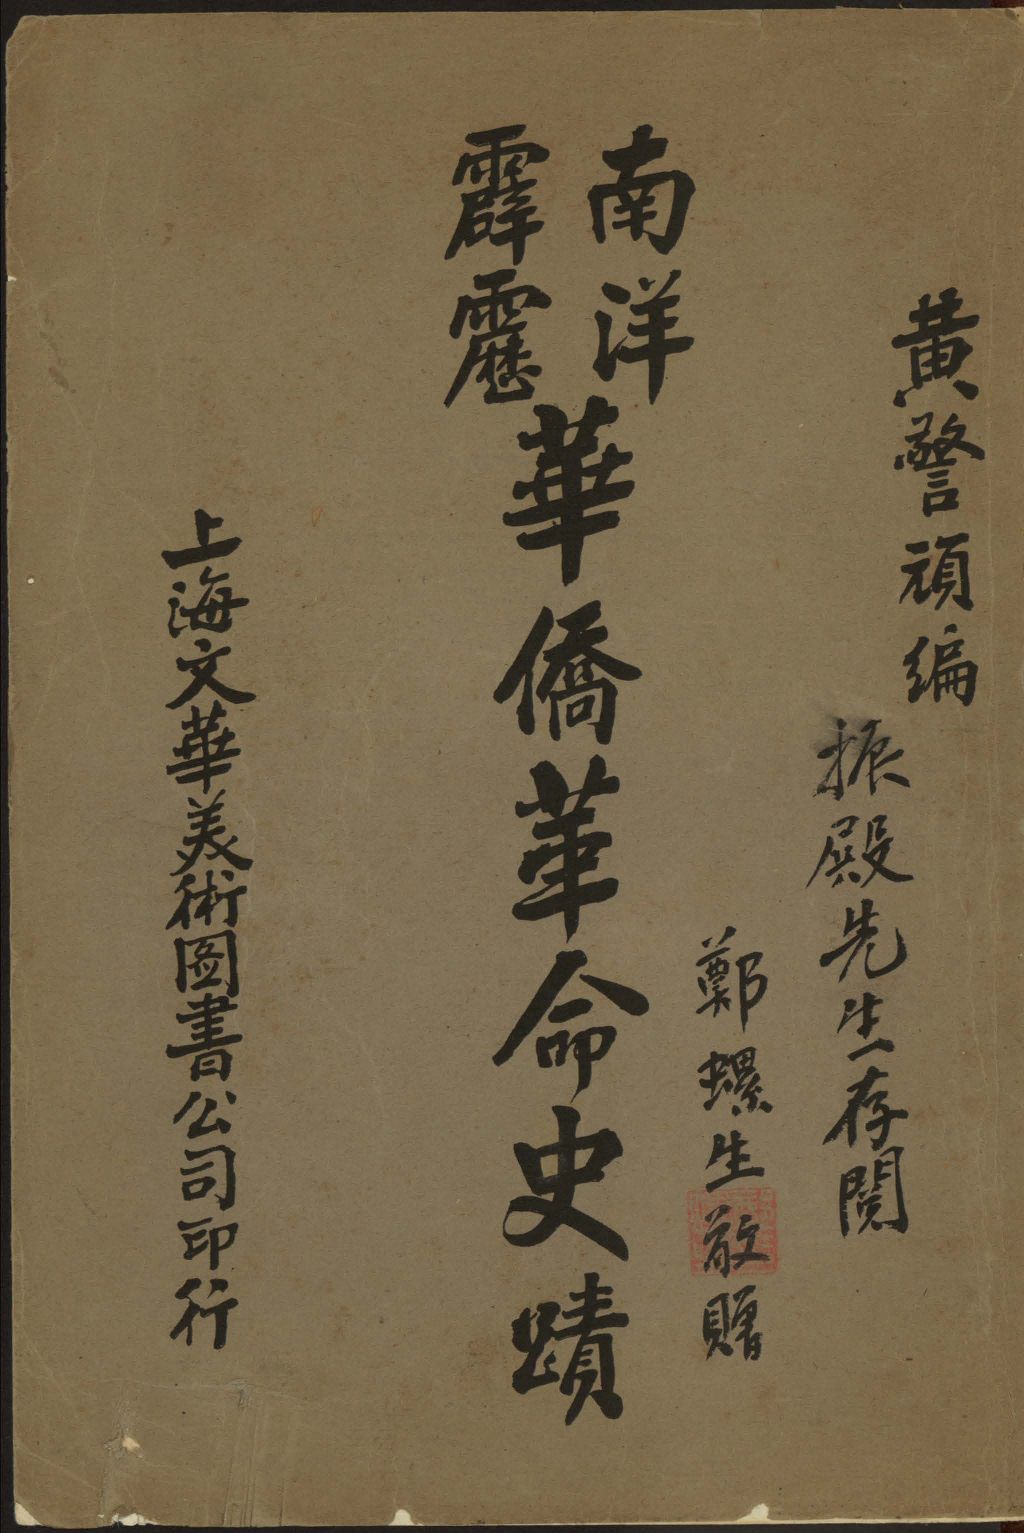 黄警頑編
振殿先生存閱
鄭螺生敬贈
南洋
霹靂
華僑革命史蹟
上海文華美術图書公司印行